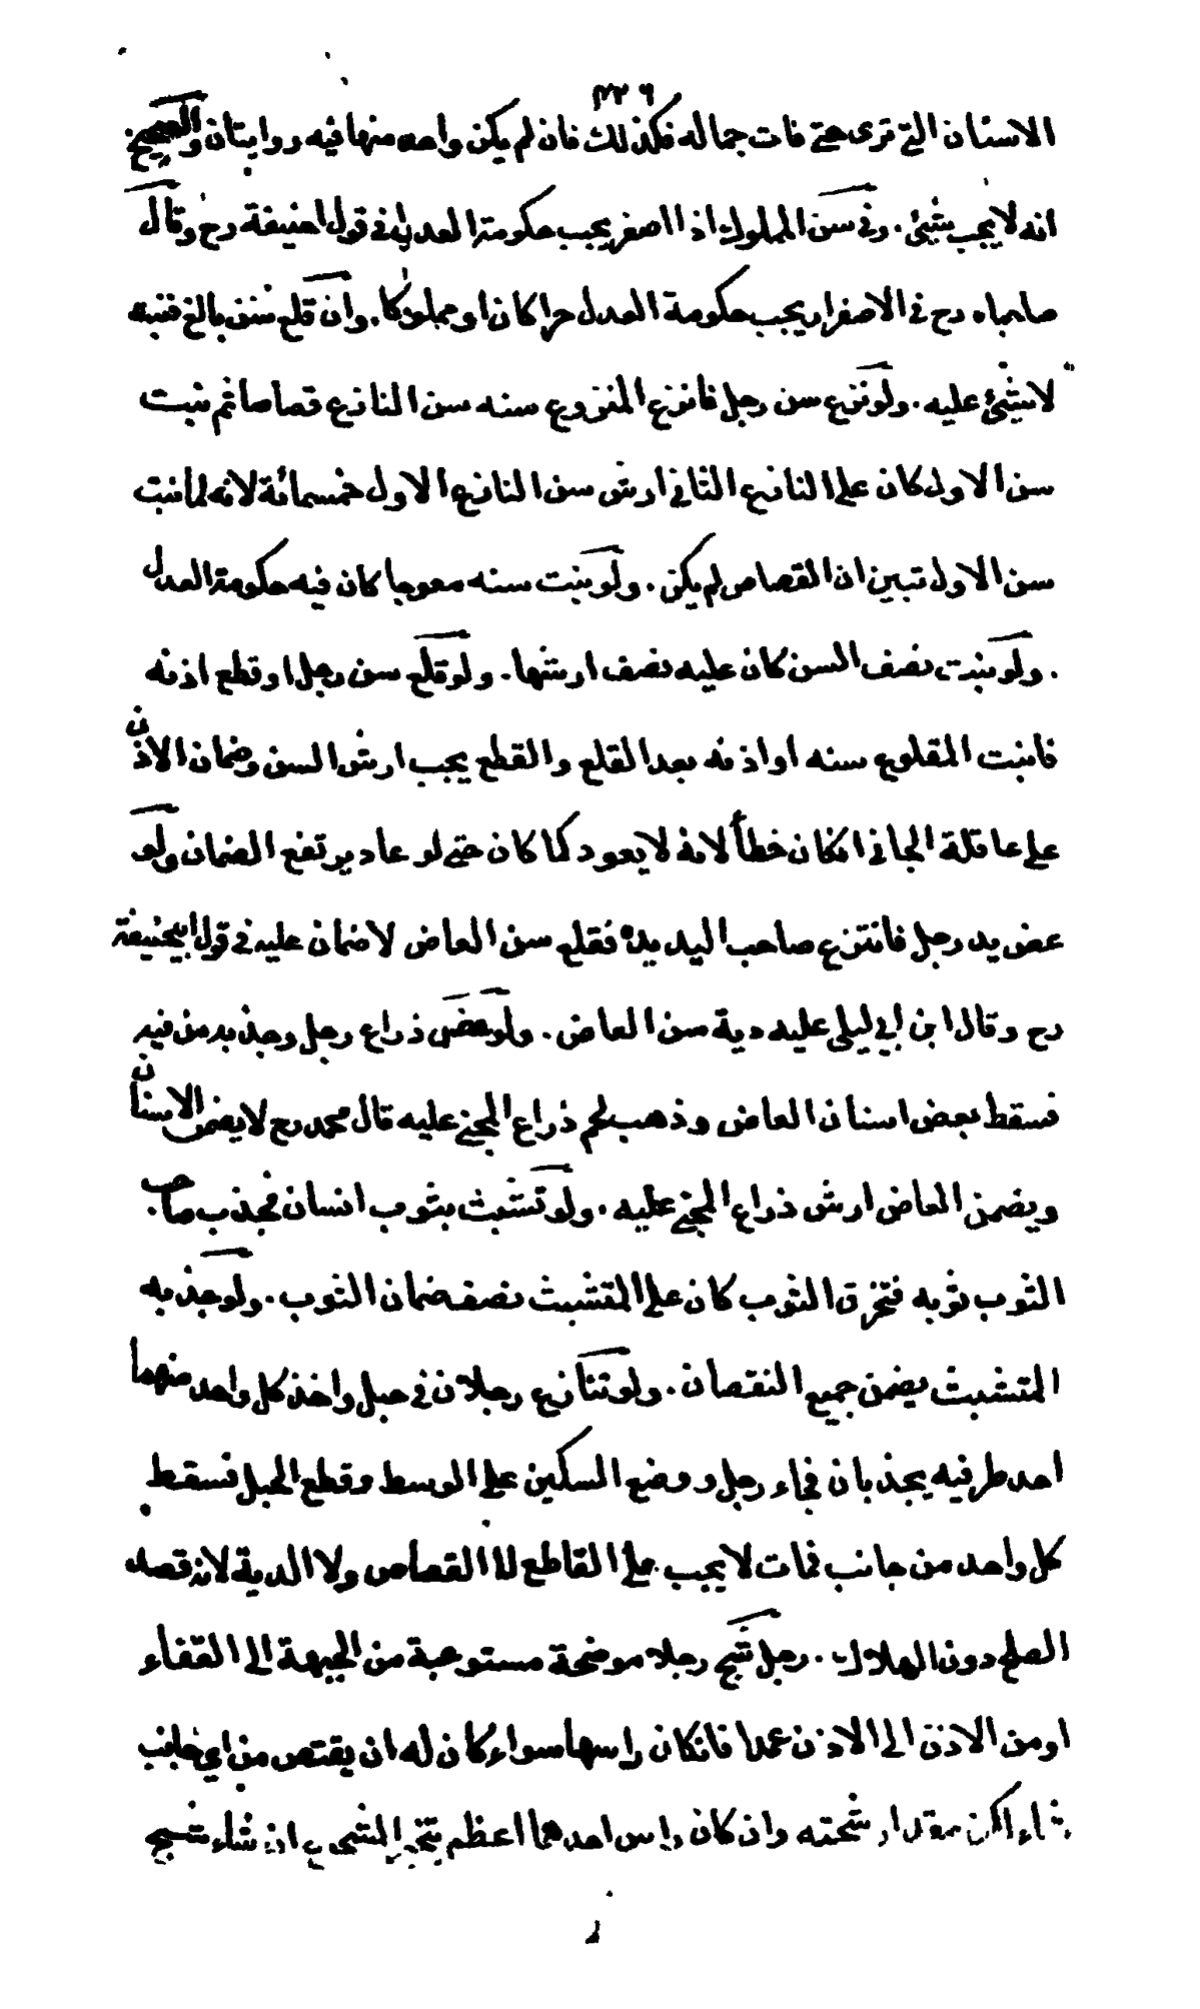 ٣٢٦
الاسنان التى ترى حتى فات جماله فكذلك فان لم يكن واحد منها ففيه روايتان والصحيح
انه لا يجب شئ . وفى سن المملوك اذا اصفر يجب حكومة العدل فى قول ابيحنيفة رح وقال
صاحباه رح فى الاصفرار يجب حكومة العدل حرا كان او مملوكا . وان قلع سن بالغ فنبت
لا شئ عليه . ولو نزع سن رجل فانزع المنزوع سنه سن النازع قصاصا ثم نبت
سن الاول كان على النازع الثانى ارش سن النازع الاول خمسمائة لانه لما نبت
سن الاول تبين ان القصاص لم يكن . ولو نبت سنه معوجا كان فيه حكومة العدل
. ولو نبت نصف السن كان عليه نصف ارشها . ولو قلع سن رجل او قطع اذنه
فانبت المقلوع سنه او اذنه بعد القلع والقطع يجب ارش السن وضمان الاذن
على عاقلة الجانى انكان خطأ لانه لا يعود كما كان حتى لو عاد يرتفع الضمان ولو
عض يد رجل فانتزع صاحب اليد يده فقلع سن العاض لا ضمان عليه فى قول ابيحنيفة
رح وقال ابن ابى ليلى عليه دية سن العاض . ولو عض ذراع رجل وجذبه من فيه
فسقط بعض اسنان العاض وذهب لحم ذراع المجنى عليه قال محمد رح لا يضمن الاسنان
ويضمن العاض ارش ذراع المجنى عليه . ولو تشبث بثوب انسان فجذب صاحب
الثوب ثوبه فتخرق الثوب كان على المتشبث نصف ضمان الثوب . ولو جذبه
المتشبث يضمن جميع النقصان . ولو تنازع رجلان فى حبل واخذ كل واحد منهما
احد طرفيه يجذبان فجاء رجل ووضع السكين على الوسط وقطع الحبل فسقط
كل واحد من جانب فمات لا يجب على القاطع لا القصاص ولا الدية لانه قصد
الصلح دون الهلاك . رجل شج رجلا موضحة مستوعبة من الجبهة الى القفاء
او من الاذن الى الاذن عمدا فانكان راسهما سواء كان له ان يقتص من اى جانب
شاء لكن مقدار شجته وان كان راس احدهما اعظم يتخير المشجوج ان شاء شج